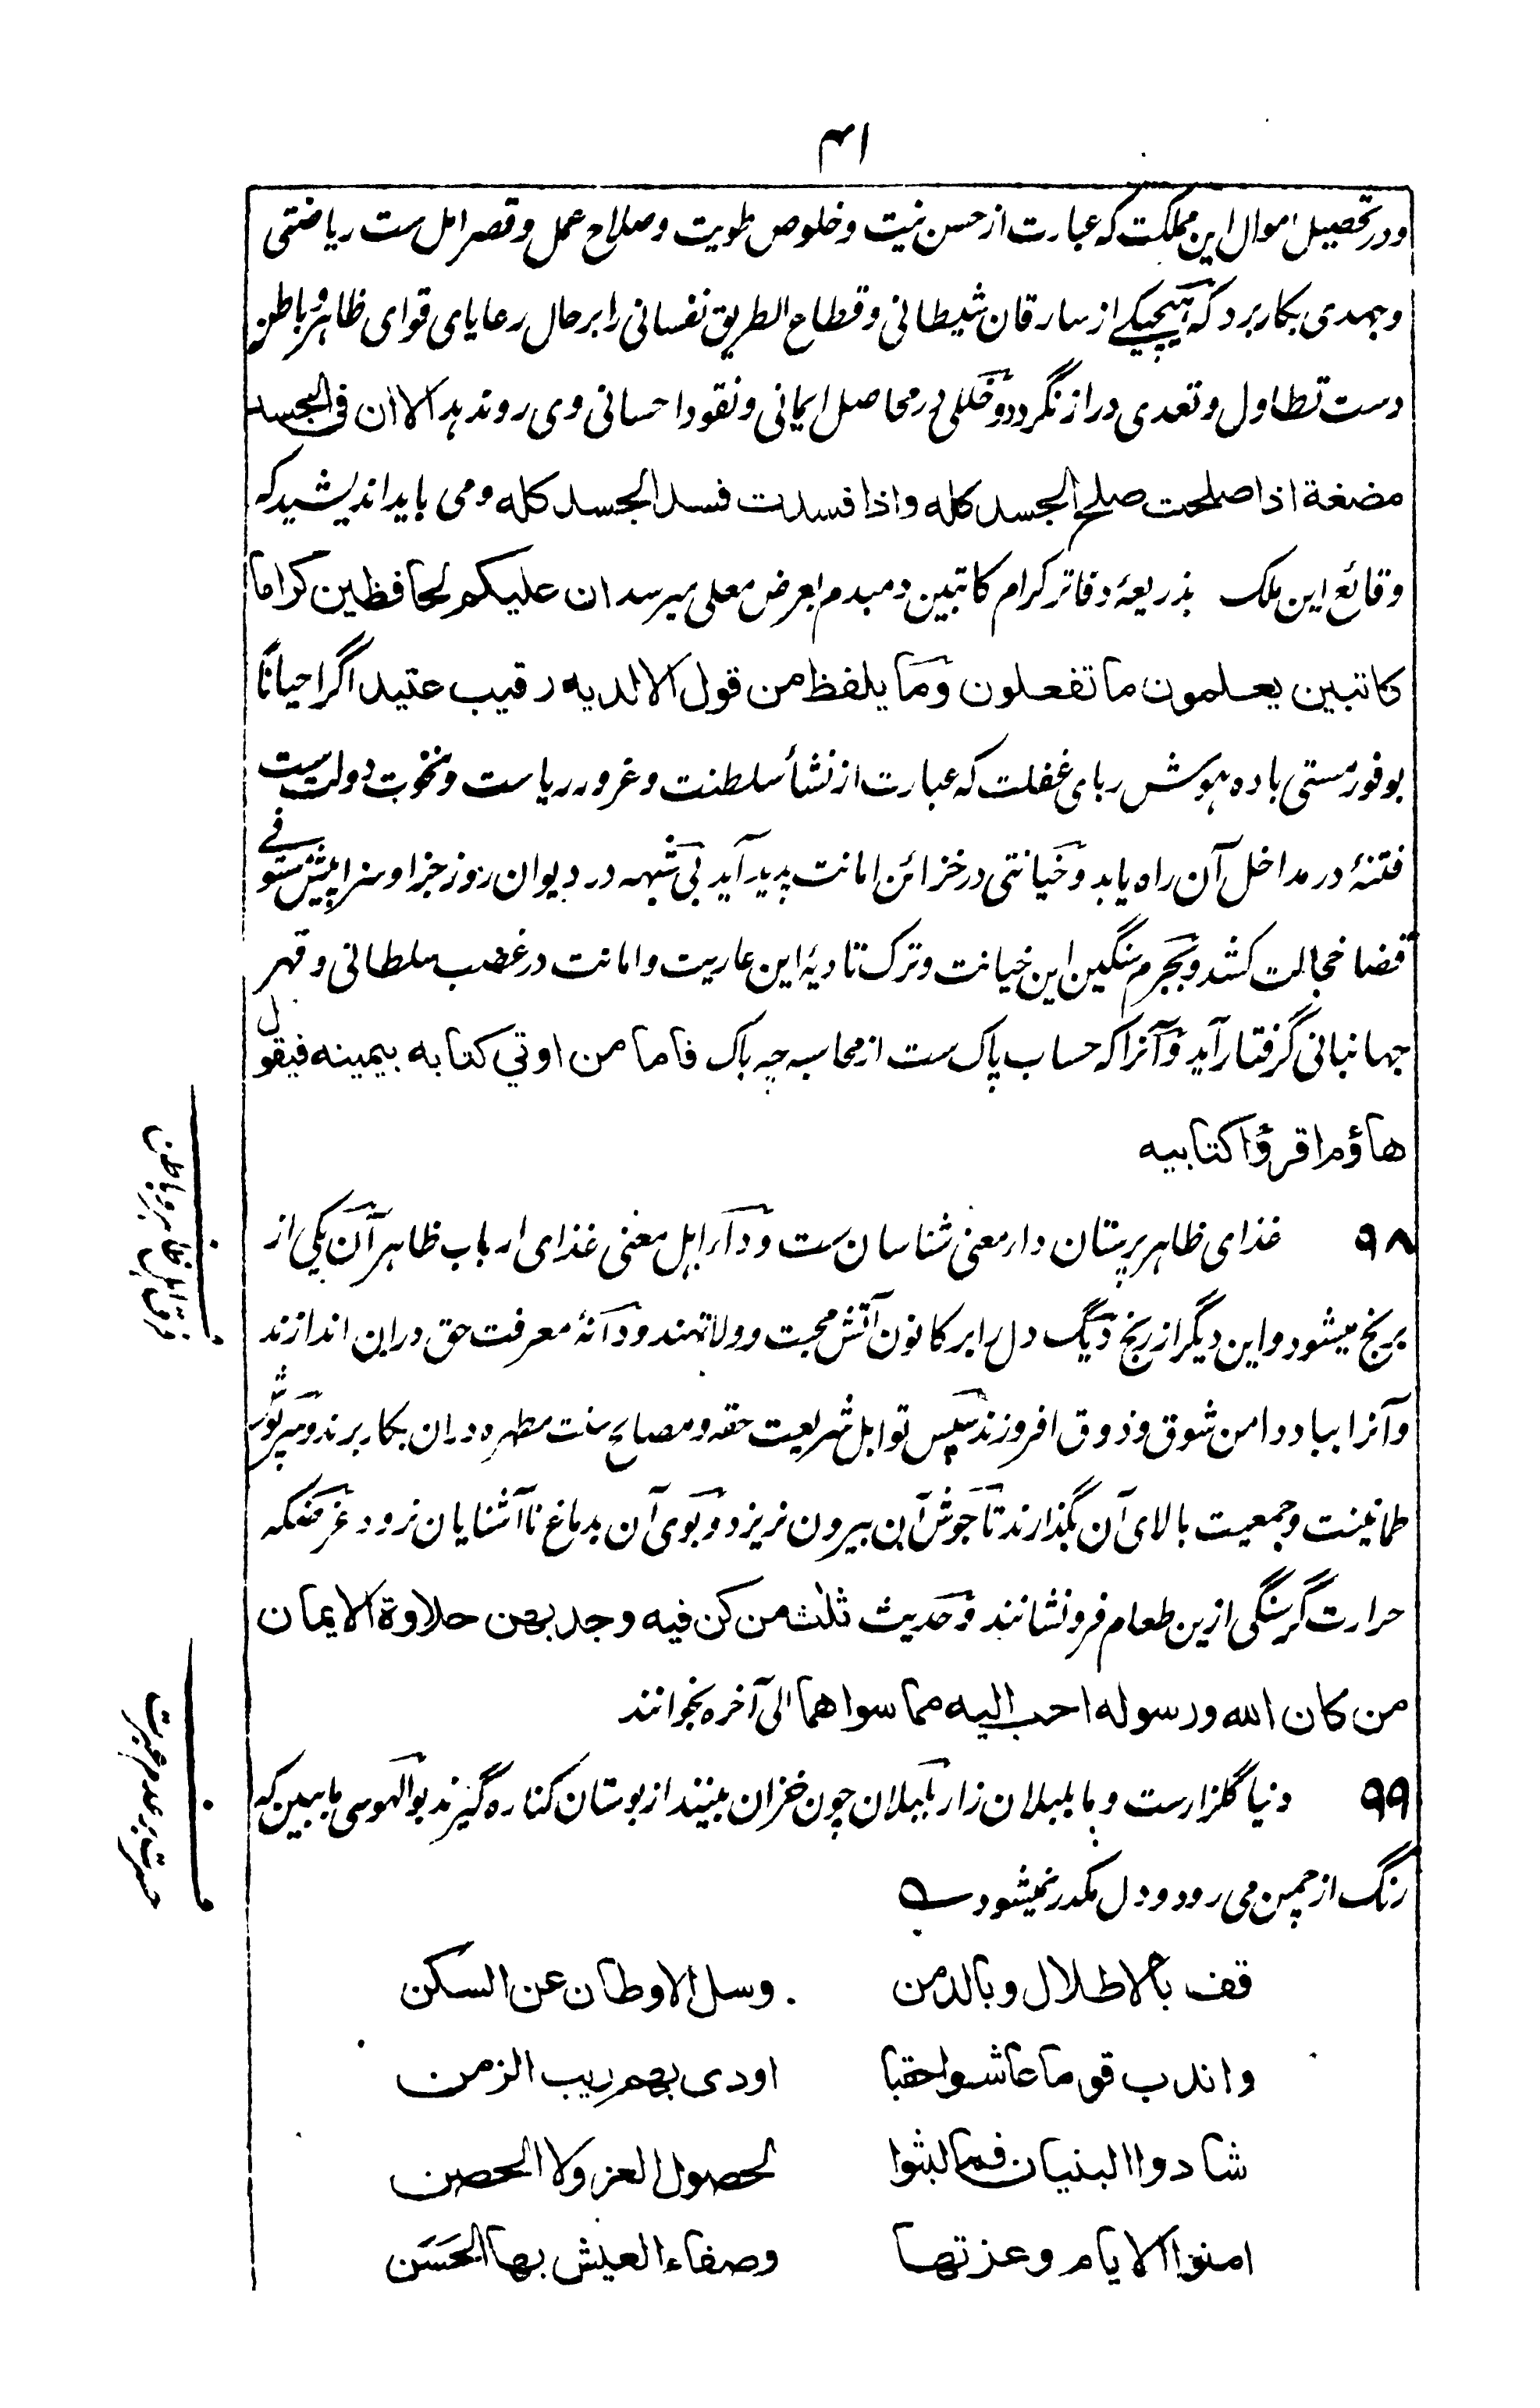 ۴۱
ودر تحصیل اموال این مملکت که عبارت از حسن نیت و خلوص طویت و صلاح عمل و قصر امل ست ریاضتی
وجهدی بکار برد که هیچیکے از سارقان شیطانی و قطاع الطریق نفسانی را بر حال رعایای قوای ظاهر و باطن
دست تطاول و تعدی دراز نگردد و خللی در محاصل ایمانی و نقود احسانی وی روندهد الا ان فی الجسد
مضغة اذا صلحت صلح الجسد کله واذا فسدت فسد الجسد کله و می باید اندیشید که
وقائع این ملک بذریعۂ دفاتر کرام کاتبین دمبدم بعرض معلی میرسد ان علیکم لحافظین کراما
کاتبین یعلمون ما تفعلون وما یلفظ من قول الا لدیه رقیب عتید اگر احیاناً
بوفور مستی باده هوش ربای غفلت که عبارت از نشأ سلطنت و غرور ریاست و نخوت دولت ست
فتنۂ در مداخل آن راه یابد و خیانتی در خزائن امانت پدید آید بی شبهه در دیوان روز جزا و سزا پیش مستوفے
قضا خجالت کشد و بجرم سنگین این خیانت و ترک تادیۂ این عاریت و امانت در غضب سلطانی و قهر
جهانبانی گرفتار آید و آنرا که حساب پاک ست از محاسبه چه باک فاما من اوتی کتابه بیمینه فیقول
هاؤم اقرؤا کتابیه
۹۸ غذای ظاهر پرستان دار معنی شناسان ست و داء اهل معنی غذای ارباب ظاهر آن یکی از
برنج میشود و این دیگر از رنج دیگ دل را بر کانون آتش محبت و ولا نهند و دانۂ معرفت حق دران اندازند
و آنرا بباد دامن شوق و ذوق افروزند سپس توابل شریعت حقه و مصالح سنت مطهره دران بکار برند و سرپوش
طمانینت و جمعیت بالای آن بگذارند تا جوش آن بیرون نریزد و بوی آن بدماغ ناآشنایان نرود غرضکه
حرارت گرسنگی ازین طعام فرو نشانند و حدیث ثلث من کن فیه وجد بهن حلاوة الایمان
من کان الله ورسوله احب الیه مما سواهما الی آخره بخوانند
فرق اهل ظاهر و باطن
۹۹ دنیا گلزارست و ما بلبلان زار بلبلان چون خزان بینند از بوستان کناره گیرند بوالهوسی ما ببین که
رنگ از چمن می رود و دل مکدر نمیشود ؎
حسرت بر عدم عبرت
قف بالاطلال وبالدمن وسل الاوطان عن السکن
واندب قوما عاشوا حقبا اودی بهم ریب الزمن
شادوا البنیان فما لبثوا لحصول العز ولا الحصن
امنوا الایام وعزتها وصفاء العیش بها الحَسَن